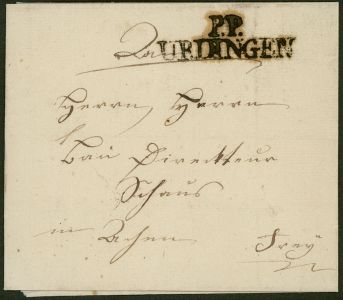 P.P.
URDINGEN
Herrn Herrn
Bau Direckteur
Schaus
in Achen
Frey